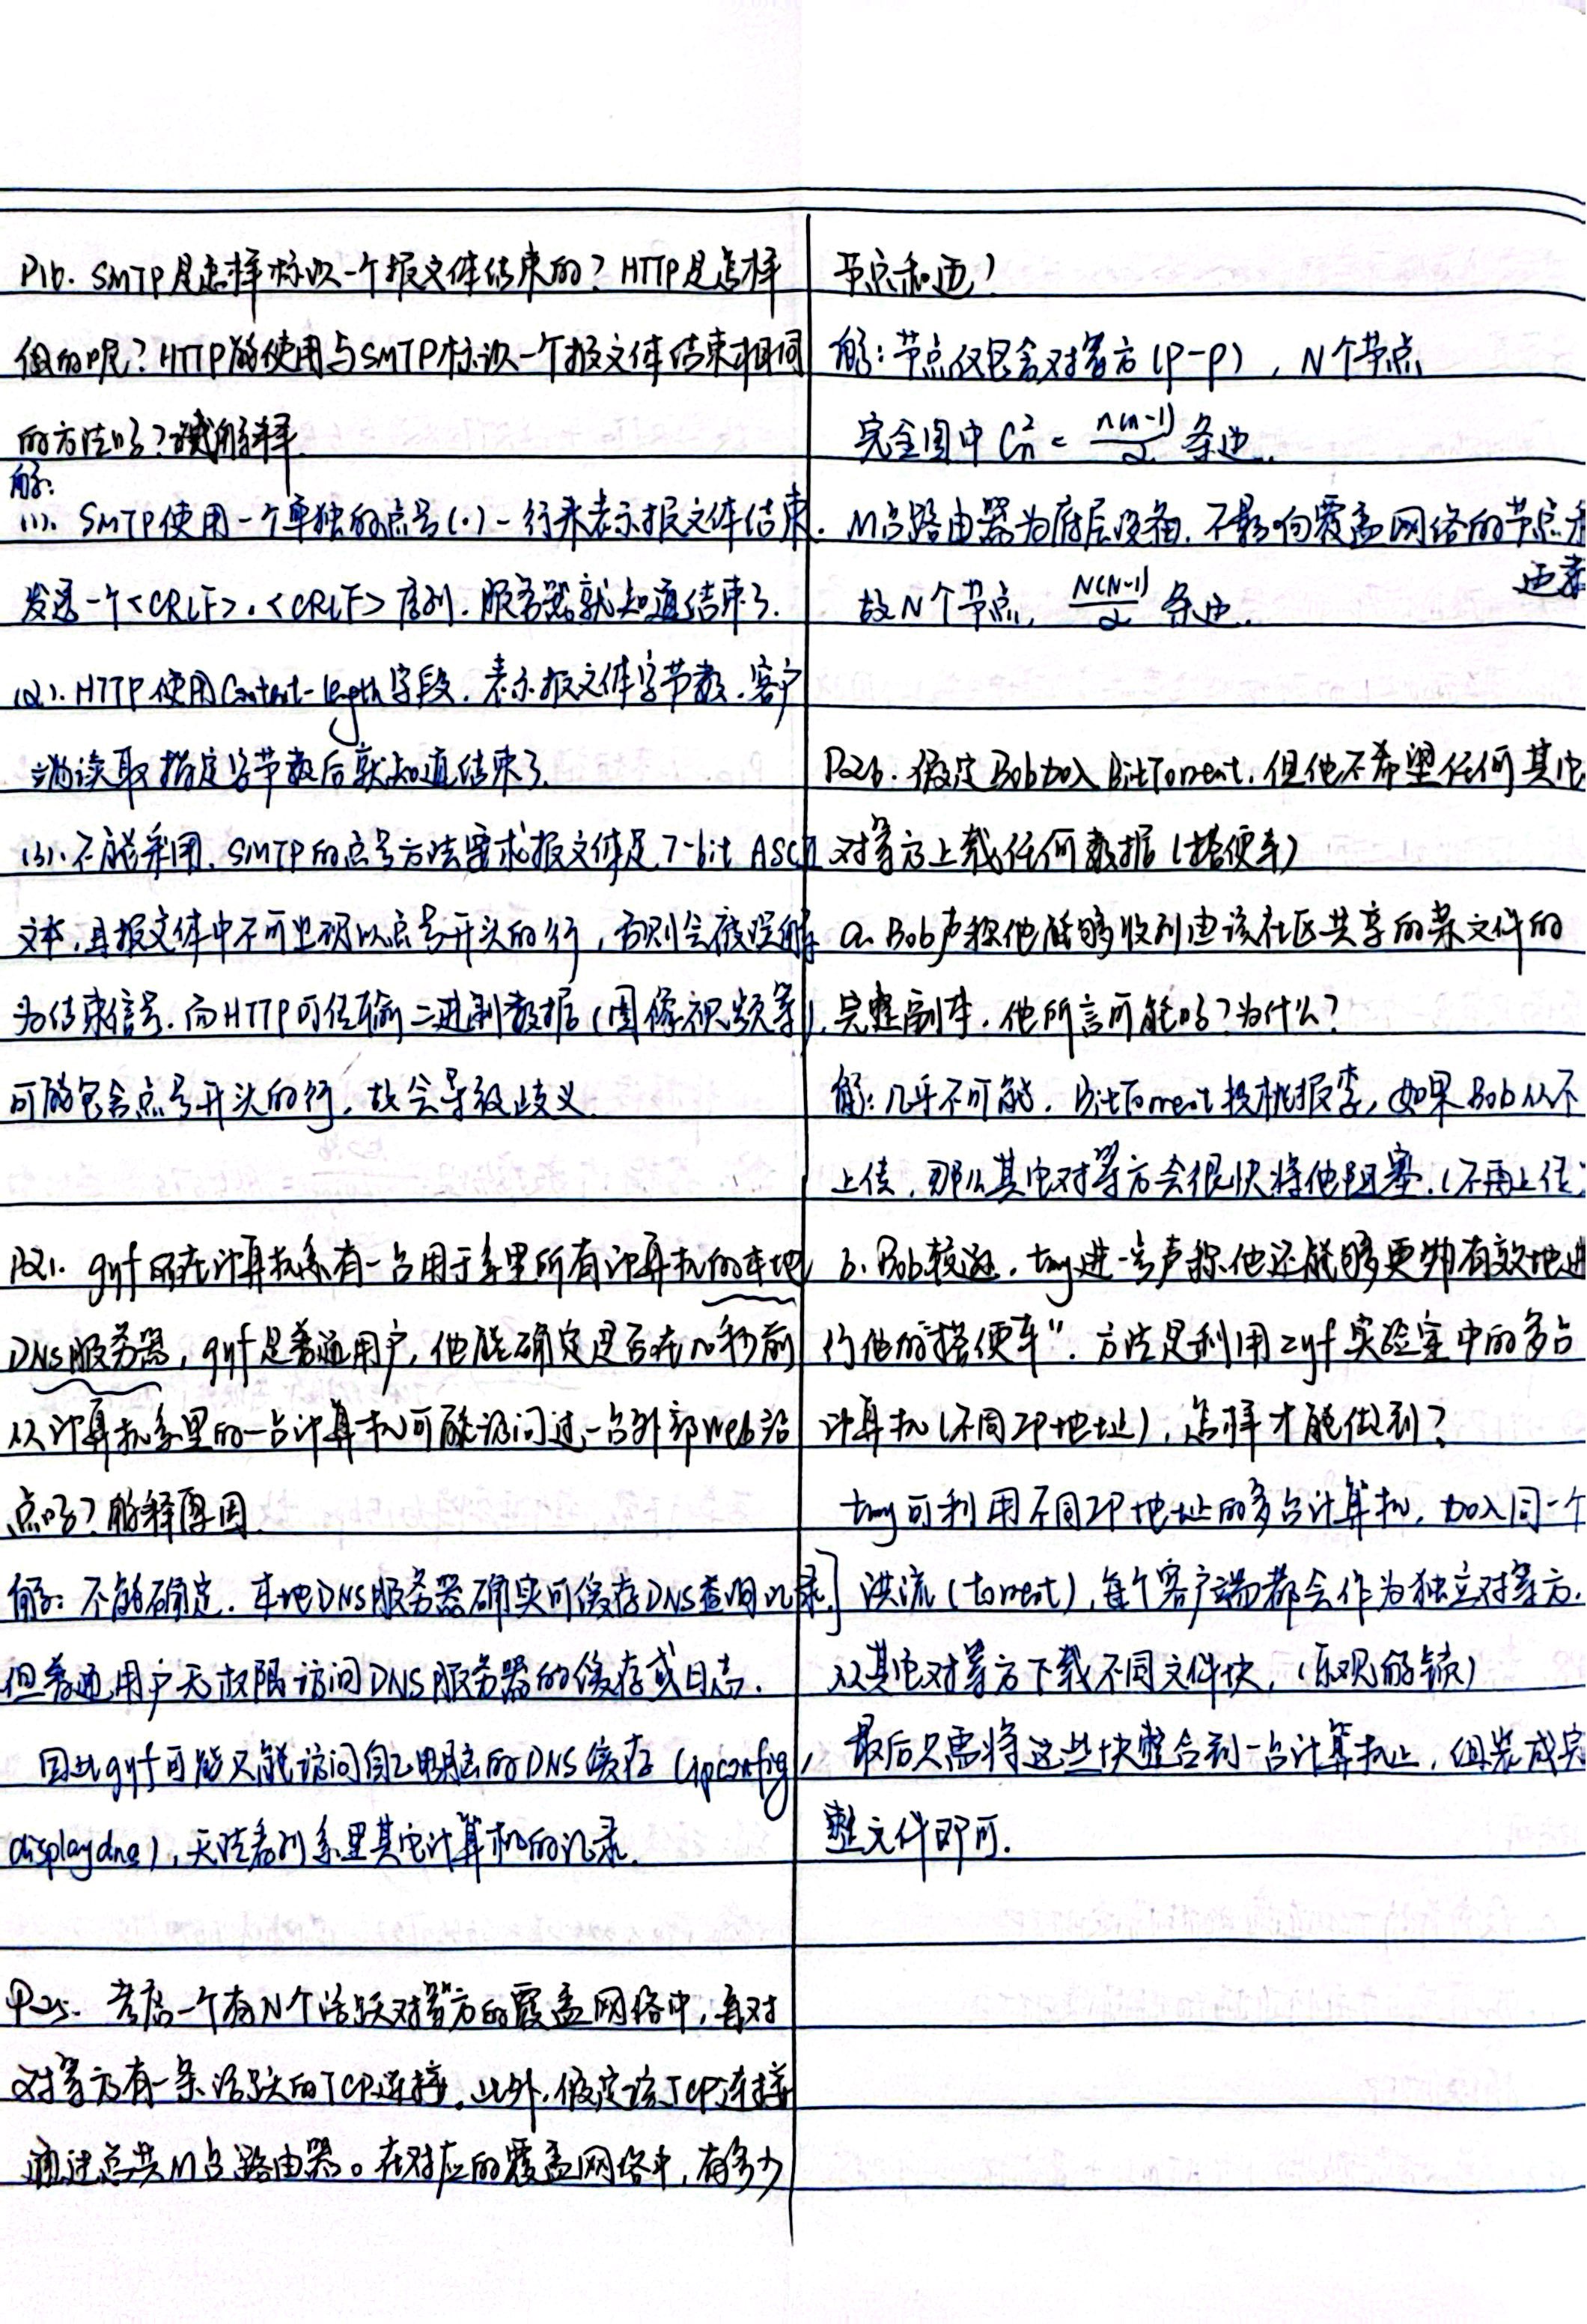 P16. SMTP是怎样标识一个报文体结束的？HTTP是怎样
做的呢？HTTP能使用与SMTP标识一个报文体结束相同
的方法吗？试解释.
解：
(1). SMTP使用一个单独的点号(.)一行来表示报文体结束.
发送一个<CRLF>.<CRLF>序列.服务器就知道结束了.
(2). HTTP使用Content-length字段.表示报文体字节数.客户
端读取指定字节数后就知道结束了.
(3). 不能采用.SMTP的点号方法要求报文体是7-bit ASCII
文本,且报文体中不可出现以点号开头的行,否则会被误解
为结束信号.而HTTP可传输二进制数据(图像视频等),
可能包含点号开头的行.故会导致歧义.
P21. gyf所在计算机系有一台用于系里所有计算机的本地
DNS服务器,gyf是普通用户,他能确定是否在几秒前
从计算机系里的一台计算机可能访问过一台外部Web站
点吗？解释原因.
解：不能确定.本地DNS服务器确实可缓存DNS查询记录.
但普通用户无权限访问DNS服务器的缓存或日志.
因此gyf可能只能访问自己电脑的DNS缓存(ipconfig/
displaydns),无法看到系里其它计算机的记录.
P25. 考虑一个有N个活跃对等方的覆盖网络中,每对
对等方有一条活跃的TCP连接.此外,假定该TCP连接
通过总共M台路由器。在对应的覆盖网络中,有多少
节点和边？
解：节点仅包含对等方(P-P),N个节点
完全图中 Cn² = n(n-1)/2 条边.
M台路由器为底层设备.不影响覆盖网络的节点和
边素
故N个节点. N(N-1)/2 条边.
P26. 假定Bob加入BitTorrent.但他不希望任何其它
对等方上载任何数据(搭便车)
a. Bob声称他能够收到由该社区共享的某文件的
完整副本.他所言可能吗？为什么？
解：几乎不可能.BitTorrent投桃报李,如果Bob从不
上传,那么其它对等方会很快将他阻塞.(不再上传)
b. Bob较逊.tmy进一步声称他还能够更为有效地进
行他的“搭便车”.方法是利用zyf实验室中的多台
计算机(不同IP地址),怎样才能做到？
tmy可利用不同IP地址的多台计算机,加入同一个
洪流(torrent),每个客户端都会作为独立对等方.
从其它对等方下载不同文件块,(乐观解锁)
最后只需将这些块整合到一台计算机上,组装成完
整文件即可.